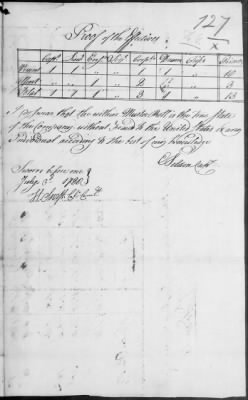 127
X
Proof of the Effectives
Capt. Lieut Ensn Serjt Corpl Drum Fifes
Present 1 1 1 " 1 1 " 10
Absent " " " " 2 " " 3
Total 1 1 1 " 3 1 " 13
I do Swear that the within Muster Roll is the true State
of the Company without fraud to the United States or any
Individual according to the best of my Knowledge
Capt
Sworn before me
July 3d 1780
H Swift